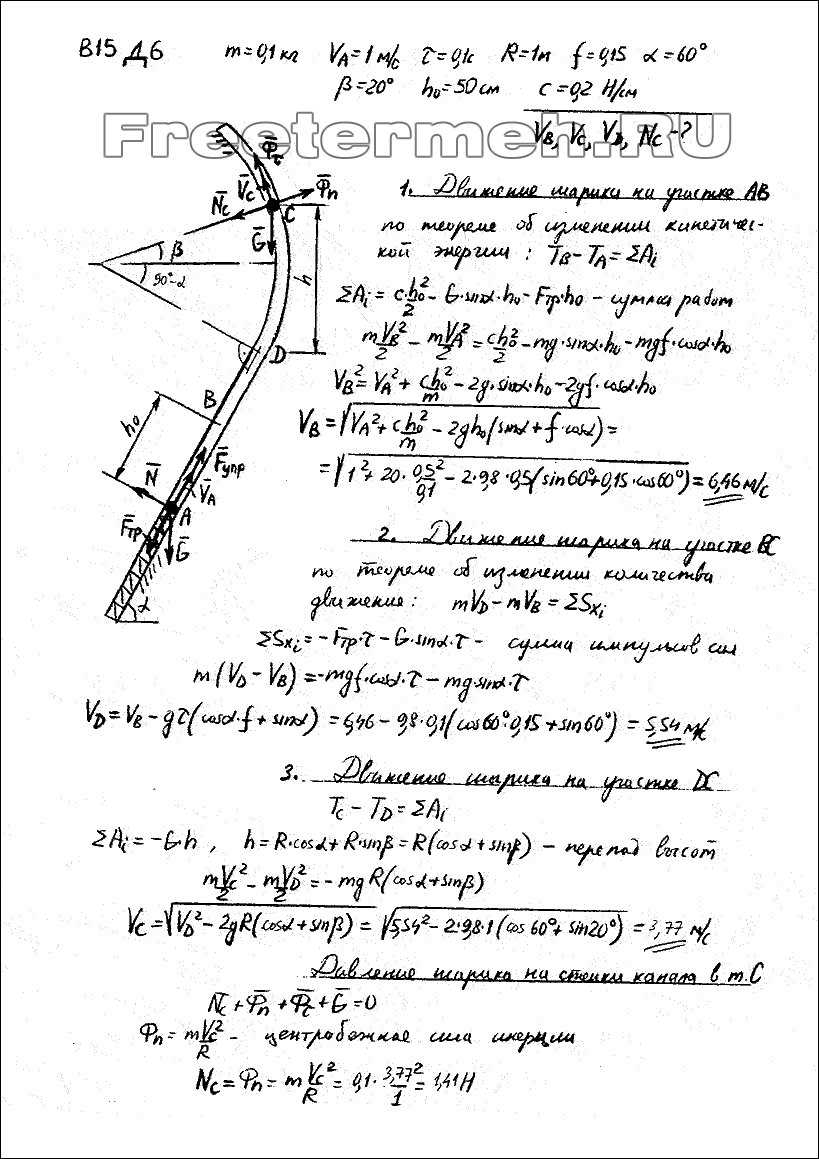 В15 Д6 m=0,1 кг V_A=1 м/с τ=0,1с R=1м f=0,15 α=60°
β=20° h₀=50см c=0,2 Н/см
Freetermeh.RU
V_B, V_C, V_D, N_C -?
Φ̄τ
V̄_C
Φ̄n
N̄_C
C
Ḡ
β
90°-α
h
D
B
h₀
F̄упр
N̄
V̄_A
A
F̄тр
Ḡ
α
1. Движение шарика на участке АВ
по теореме об изменении кинетичес-
кой энергии : T_B-T_A=ΣAi
ΣAi= c·h₀²/2 - G·sinα·h₀ - Fтр·h₀ - сумма работ
mV_B²/2 - mV_A²/2 = ch₀²/2 - mg·sinα·h₀ - mgf·cosα·h₀
V_B²=V_A²+ ch₀²/m - 2g·sinα·h₀ - 2gf·cosα·h₀
V_B = √(V_A²+ ch₀²/m - 2gh₀(sinα+f·cosα)) =
= √(1²+20·0,5²/0,1 - 2·9,8·0,5(sin60°+0,15·cos60°)) = 6,46 м/с
2. Движение шарика на участке ВС
по теореме об изменении количества
движение: mV_D-mV_B=ΣSxi
ΣSxi=-Fтр·τ-G·sinα·τ - сумма импульсов сил
m(V_D-V_B)=-mgf·cosα·τ-mgsinα·τ
V_D=V_B-gτ(cosα·f+sinα) =6,46-9,8·0,1(cos60°·0,15+sin60°) = 5,54 м/с
3. Движение шарика на участке DC
T_C-T_D=ΣAi
ΣAi=-G·h , h=R·cosα+R·sinβ=R(cosα+sinβ) - перепад высот
mV_C²/2 - mV_D²/2 = -mgR(cosα+sinβ)
V_C=√(V_D²-2gR(cosα+sinβ)) = √(5,54²-2·9,8·1(cos60°+sin20°)) = 3,77 м/с
Давление шарика на стенки канала в т.С
N̄_C+Φ̄n+Φ̄τ+Ḡ=0
Φn=mV_C²/R - центробежная сила инерции
N_C=Φn=m V_C²/R = 0,1·3,77²/1 = 1,41Н